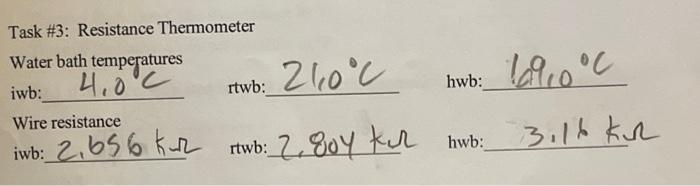 Task #3: Resistance Thermometer
Water bath temperatures
iwb: 4.0°C rtwb: 21.0°C hwb: °C
Wire resistance
iwb: 2.656 kΩ rtwb: 2.804 kΩ hwb: 3.16 kΩ